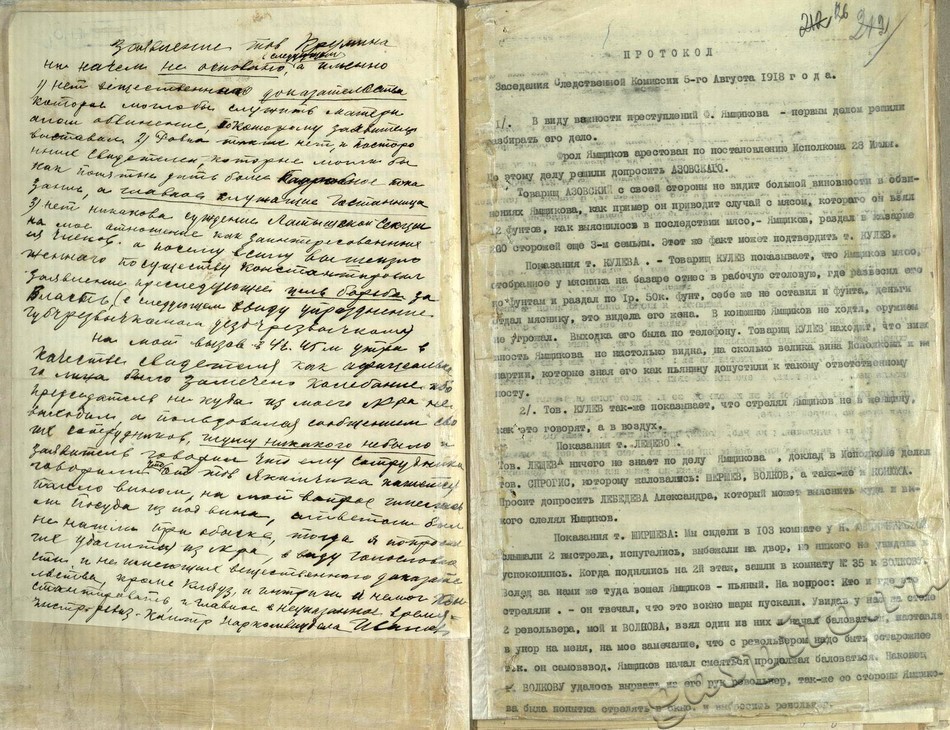 Заявление тов Крумина
(следующим
ни начем не основано, а именно
1) нет вещественнаго доказательства
которое могло бы служить матери
алом обвинение, по которому заявитель
выставал 2) Ровно также нет и посторо
нних свидетелей, которые могли бы
как понятые дать были показа
зание, а главное служащие гостиницы
3) нет никакова суждение Латышской Секции
на мое отношение как заинтересованных
ея членов. а посему всему выше изло
женнаго по существу констатировал
заявление преследующей цель борьбы за
Власть, (в следующем ввиду упразднение
губчрезвычкомам уездчрезвычкомам)
на мой вызов в 4 ч. 45 м утра в
качестве свидетеля как официальна
го лица было замечено колебание, ибо
председатель ни куда из моего № ра не
выходил а пользовался сообщением сво
их сотрудников, шуму никакого небыло и
заявитель говорил что ему сотрудники
говорили что тов Якимчика
пахло вином, на мой вопрос имелась
ли посуда из под вина, ответом был
не нашли при обыске, тогда я попросил
их удалится из № ра, в виду голословно
сти и неимеющих вещественнаго доказате
льства, кроме Кляуз, и интриги я немог кон
статировать и главное в неуказанное время.
Инстр. ревиз. - Контор Наркомвнудела Иванов
212 126
242
ПРОТОКОЛ
Заседания Следственной Комиссии 5-го Августа 1918 года.
1/. В виду важности преступлений Ф. Ямщикова - первым делом решили
разбирать его дело.
Фрол Ямщиков арестован по постановлению Исполкома 28 Июля.
По этому делу решили допросить АЗОВСКАГО.
Товарищ АЗОВСКИЙ с своей стороны не видит большой виновности в обви-
нениях Ямщикова, как пример он приводит случай с мясом, котораго он взял
2 фунтов, как выяснилось в последствии мясо,- Ямщиков, раздал в казарме
60 сторожей еще 3-м семьям. Этот же факт может подтвердить т. КУЛЕВ.
Показания т. КУЛЕВА. - Товарищ КУЛЕВ показывает, что Ямщиков мясо,
отобранное у мясника на базаре отнес в рабочую столовую, где развесил его
по фунтам и раздал по 1р. 50к. фунт, себе же не оставил и фунта, деньги
отдал мяснику, это видела его жена. В конюшню Ямщиков не ходил, оружием
не угрожал. Выходка его была по телефону. Товарищ КУЛЕВ находит, что вино-
вность Ямщикова не настолько видна, на сколько велика вина Исполкома и их
партии, которые зная его как пьяницу допустили к такому ответственному
посту.
2/. Тов. КУЛЕВ так-же показывает, что стрелял Ямщиков не в женщину,
как это говорят, а в воздух.
Показания т. ЛЕЩЕВО.
Тов. ЛЕЩЕВ ничего не знает по делу Ямщикова, доклад в Исполкоме делал
тов. СПРОГИС, которому жаловались: НЕРШЕВ, ВОЛКОВ, а так-же в КОНЮХА.
Просит допросить ЛЕБЕДЕВА Александра, который может выяснить куда и в ко-
кого стрелял Ямщиков.
Показания т. НИРШЕВА: Мы сидели в 103 комнате у Н.
слышали 2 выстрела, испугались, выбежали на двор, но никого не увидели
успокоились. Когда поднялись на 2й этаж, зашли в комнату № 35 к ВОЛКОВУ
Вслед за нами же туда вошел Ямщиков - пьяный. На вопрос: Кто и где это
стреляли. - он твечал, что это вокно шары пускали. Увидав у нас на столе
2 револьвера, мой и ВОЛКОВА, взял один из них и начал баловаться, наставляя
в упор на меня, на мое замечание, что с револьвером надо быть осторожнее
т.к. он самовзвод. Ямщиков начал смеяться продолжая баловаться. Наконец
т. ВОЛКОВУ удалось вырвать из его рук револьвер, так-же со стороны Ямщико-
ва была попытка стрелять в окно, и выбросить револьвер.